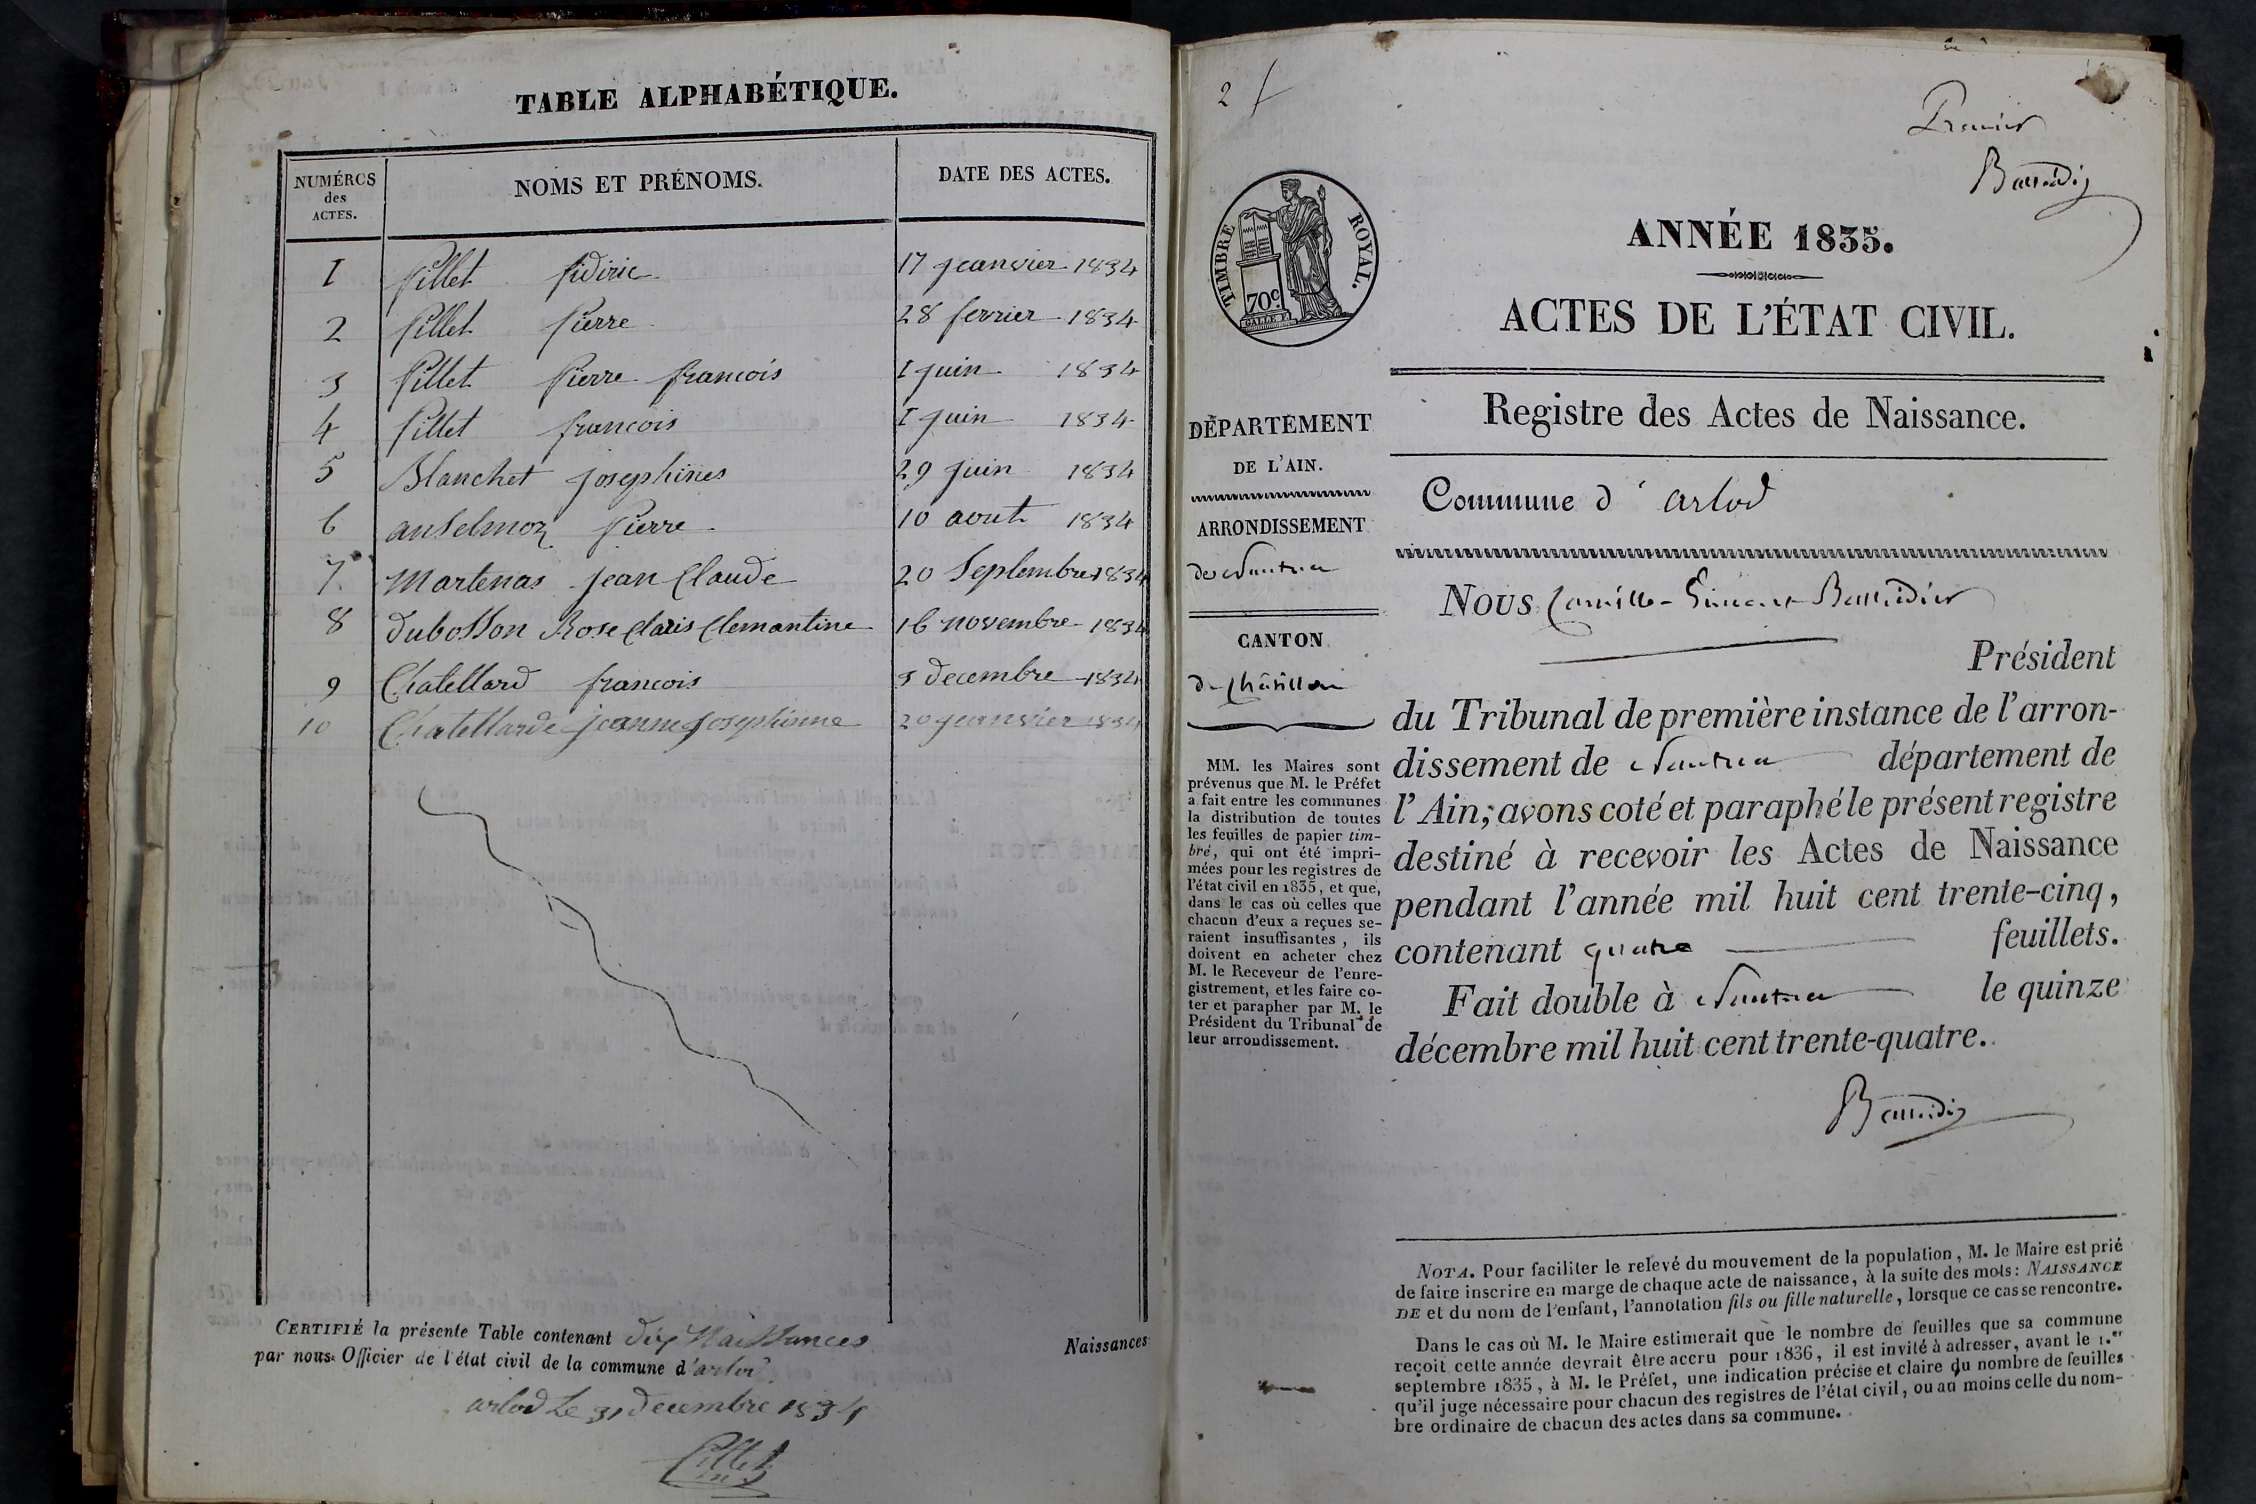 TABLE ALPHABÉTIQUE.
NUMÉROS
des
ACTES.
NOMS ET PRÉNOMS.
DATE DES ACTES.
1 Pillet fidiric 17 jeanvier 1834
2 Pillet Pierre 28 fevrier 1834
3 Pillet Pierre francois 1 juin 1834
4 Pillet francois 1 juin 1834
5 Blanchet josephines 29 juin 1834
6 anselmoz Pierre 10 aout 1834
7 Martenas jean Claude 20 Septembre 1834
8 dubosson Rose Claris Clemantine 16 novembre 1834
9 Chatellard francois 5 decembre 1834
10 Chatellarde jeanne josephinne 20 jeanvier 1834
CERTIFIÉ la présente Table contenant dix Naissances Naissances
par nous Officier de l'état civil de la commune d'arlod
arlod Le 31 decembre 1834
Pillet
2
Premier
ANNÉE 1835.
ACTES DE L'ÉTAT CIVIL.
TIMBRE ROYAL.
70c.
Registre des Actes de Naissance.
DÉPARTEMENT
DE L'AIN.
ARRONDISSEMENT
de Nantua
CANTON
de Châtillon
MM. les Maires sont
prévenus que M. le Préfet
a fait entre les communes
la distribution de toutes
les feuilles de papier tim-
bré, qui ont été impri-
mées pour les registres de
l'état civil en 1835, et que,
dans le cas où celles que
chacun d'eux a reçues se-
raient insuffisantes, ils
doivent en acheter chez
M. le Receveur de l'enre-
gistrement, et les faire co-
ter et parapher par M. le
Président du Tribunal de
leur arrondissement.
Commune d' arlod
NOUS Camille-Simon
Président
du Tribunal de première instance de l'arron-
dissement de Nantua département de
l'Ain; avons coté et paraphé le présent registre
destiné à recevoir les Actes de Naissance
pendant l'année mil huit cent trente-cinq,
contenant quatre feuillets.
Fait double à Nantua le quinze
décembre mil huit cent trente-quatre.
NOTA. Pour faciliter le relevé du mouvement de la population, M. le Maire est prié
de faire inscrire en marge de chaque acte de naissance, à la suite des mots: NAISSANCE
DE et du nom de l'enfant, l'annotation fils ou fille naturelle, lorsque ce cas se rencontre.
Dans le cas où M. le Maire estimerait que le nombre de feuilles que sa commune
reçoit cette année devrait être accru pour 1836, il est invité à adresser, avant le 1.er
septembre 1835, à M. le Préfet, une indication précise et claire du nombre de feuilles
qu'il juge nécessaire pour chacun des registres de l'état civil, ou au moins celle du nom-
bre ordinaire de chacun des actes dans sa commune.